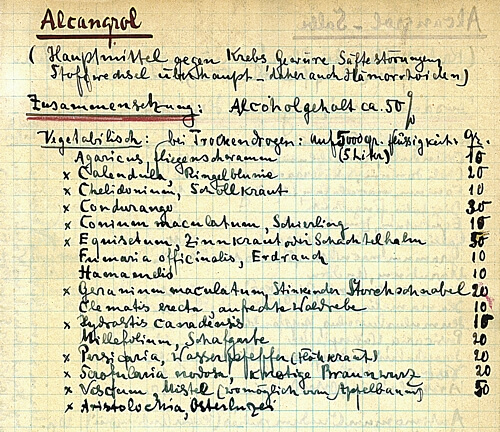 Alcangrol
(Hauptmittel gegen Krebs Gewüre Säftestörungen
Stoffwechsel überhaupt - daher auch Hämorrhoiden)
Zusammensetzung: Alcoholgehalt ca. 50%
Vegetabilisch: bei Trockendrogen: auf 5000gr. flüssigkeit: gr.
Agaricus, fliegenschwamm (5 Liter) 10
x Calendula, Ringelblume 20
x Chelidonium, Schöllkraut 10
x Condurango 30
x Conium maculatum, Schierling 10
x Equisetum, Zinnkraut oder Schachtelhalm 50
Fumaria officinalis, Erdrauch 10
Hamamelis 10
x Geranium maculatum, Stinkender Storchschnabel 20
Clematis erecta, aufrechte Waldrebe 10
x Hydrastis canadensis 10
Millefolium, Schafgarbe 20
x Persicaria, Wasserpfeffer (Flohkraut) 20
x Scrofularia nodosa, Knotige Braunwurz 20
x Viscum, Mistel (womöglich vom Apfelbaum) 50
x Aristolochia, Osterluzei